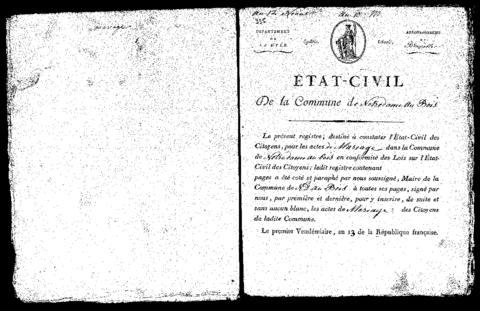 mariage
An 13
335
DÉPARTEMENT
DE
LA DYLE
Égalité.
Liberté.
ARRONDISSEMENT
de
Bruxelles
ÉTAT-CIVIL
De la Commune de Notredame du Bois
Le présent registre, destiné à constater l'État-Civil des
Citoyens, pour les actes de Mariage dans la Commune
de Notredame du bois en conformité des Lois sur l'État-
Civil des Citoyens; ledit registre contenant
pages a été coté et paraphé par nous soussigné, Maire de la
Commune de ND du Bois à toutes ses pages, signé par
nous, par première et dernière, pour y inscrire, de suite et
sans aucun blanc, les actes de Mariage des Citoyens
de ladite Commune.
Le premier Vendémiaire, an 13 de la République française.